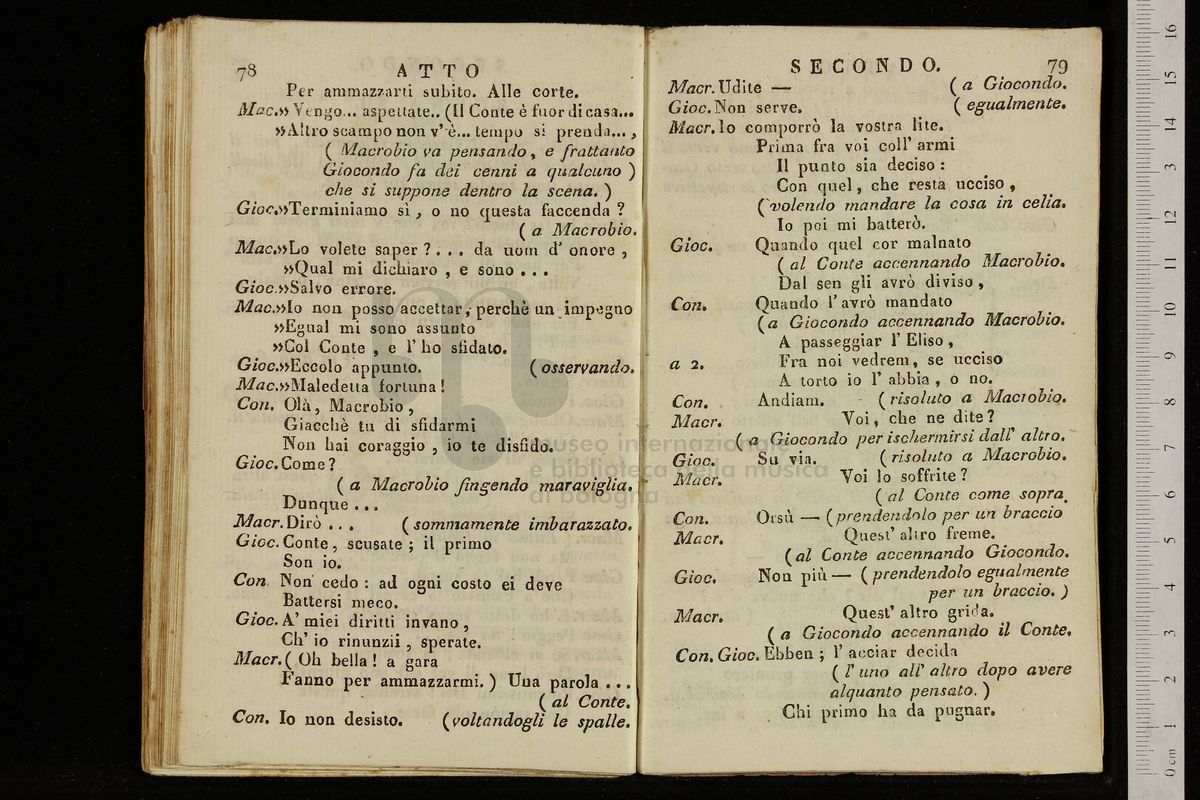 78 ATTO
Per ammazzarti subito. Alle corte.
Mac.» Vengo... aspettate.. (Il Conte è fuor di casa...
»Altro scampo non v'è... tempo si prenda... ,
( Macrobio va pensando, e frattanto
Giocondo fa dei cenni a qualcuno )
che si suppone dentro la scena. )
Gioc.»Terminiamo sì, o no questa faccenda ?
( a Macrobio.
Mac.»Lo volete saper ? . . . da uom d' onore ,
»Qual mi dichiaro , e sono . . .
Gioc.»Salvo errore.
Mac.»Io non posso accettar, perchè un impegno
»Egual mi sono assunto
»Col Conte , e l' ho sfidato.
Gioc.»Eccolo appunto. ( osservando.
Mac.»Maledetta fortuna !
Con. Olà, Macrobio ,
Giacchè tu di sfidarmi
Non hai coraggio , io te disfido.
Gioc. Come ?
( a Macrobio fingendo maraviglia.
Dunque . . .
Macr. Dirò . . . ( sommamente imbarazzato.
Gioc. Conte, scusate ; il primo
Son io.
Con. Non cedo : ad ogni costo ei deve
Battersi meco.
Gioc. A' miei diritti invano ,
Ch' io rinunzii , sperate.
Macr. ( Oh bella ! a gara
Fanno per ammazzarmi. ) Una parola . . .
( al Conte.
Con. Io non desisto. ( voltandogli le spalle.
SECONDO. 79
Macr. Udite — ( a Giocondo.
Gioc. Non serve. ( egualmente.
Macr. Io comporrò la vostra lite.
Prima fra voi coll' armi
Il punto sia deciso :
Con quel, che resta ucciso ,
( volendo mandare la cosa in celia.
Io poi mi batterò.
Gioc. Quando quel cor malnato
( al Conte accennando Macrobio.
Dal sen gli avrò diviso ,
Con. Quando l' avrò mandato
( a Giocondo accennando Macrobio.
A passeggiar l' Eliso ,
a 2. Fra noi vedrem, se ucciso
A torto io l' abbia , o no.
Con. Andiam. ( risoluto a Macrobio.
Macr. Voi, che ne dite ?
( a Giocondo per ischermirsi dall' altro.
Gioc. Su via. ( risoluto a Macrobio.
Macr. Voi lo soffrite ?
( al Conte come sopra.
Con. Orsù — ( prendendolo per un braccio
Macr. Quest' altro freme.
( al Conte accennando Giocondo.
Gioc. Non più — ( prendendolo egualmente
per un braccio. )
Macr. Quest' altro grida.
( a Giocondo accennando il Conte.
Con. Gioc. Ebben ; l' acciar decida
( l' uno all' altro dopo avere
alquanto pensato. )
Chi primo ha da pugnar.
museo internazionale
e biblioteca della musica
di bologna
0 cm 1 2 3 4 5 6 7 8 9 10 11 12 13 14 15 16